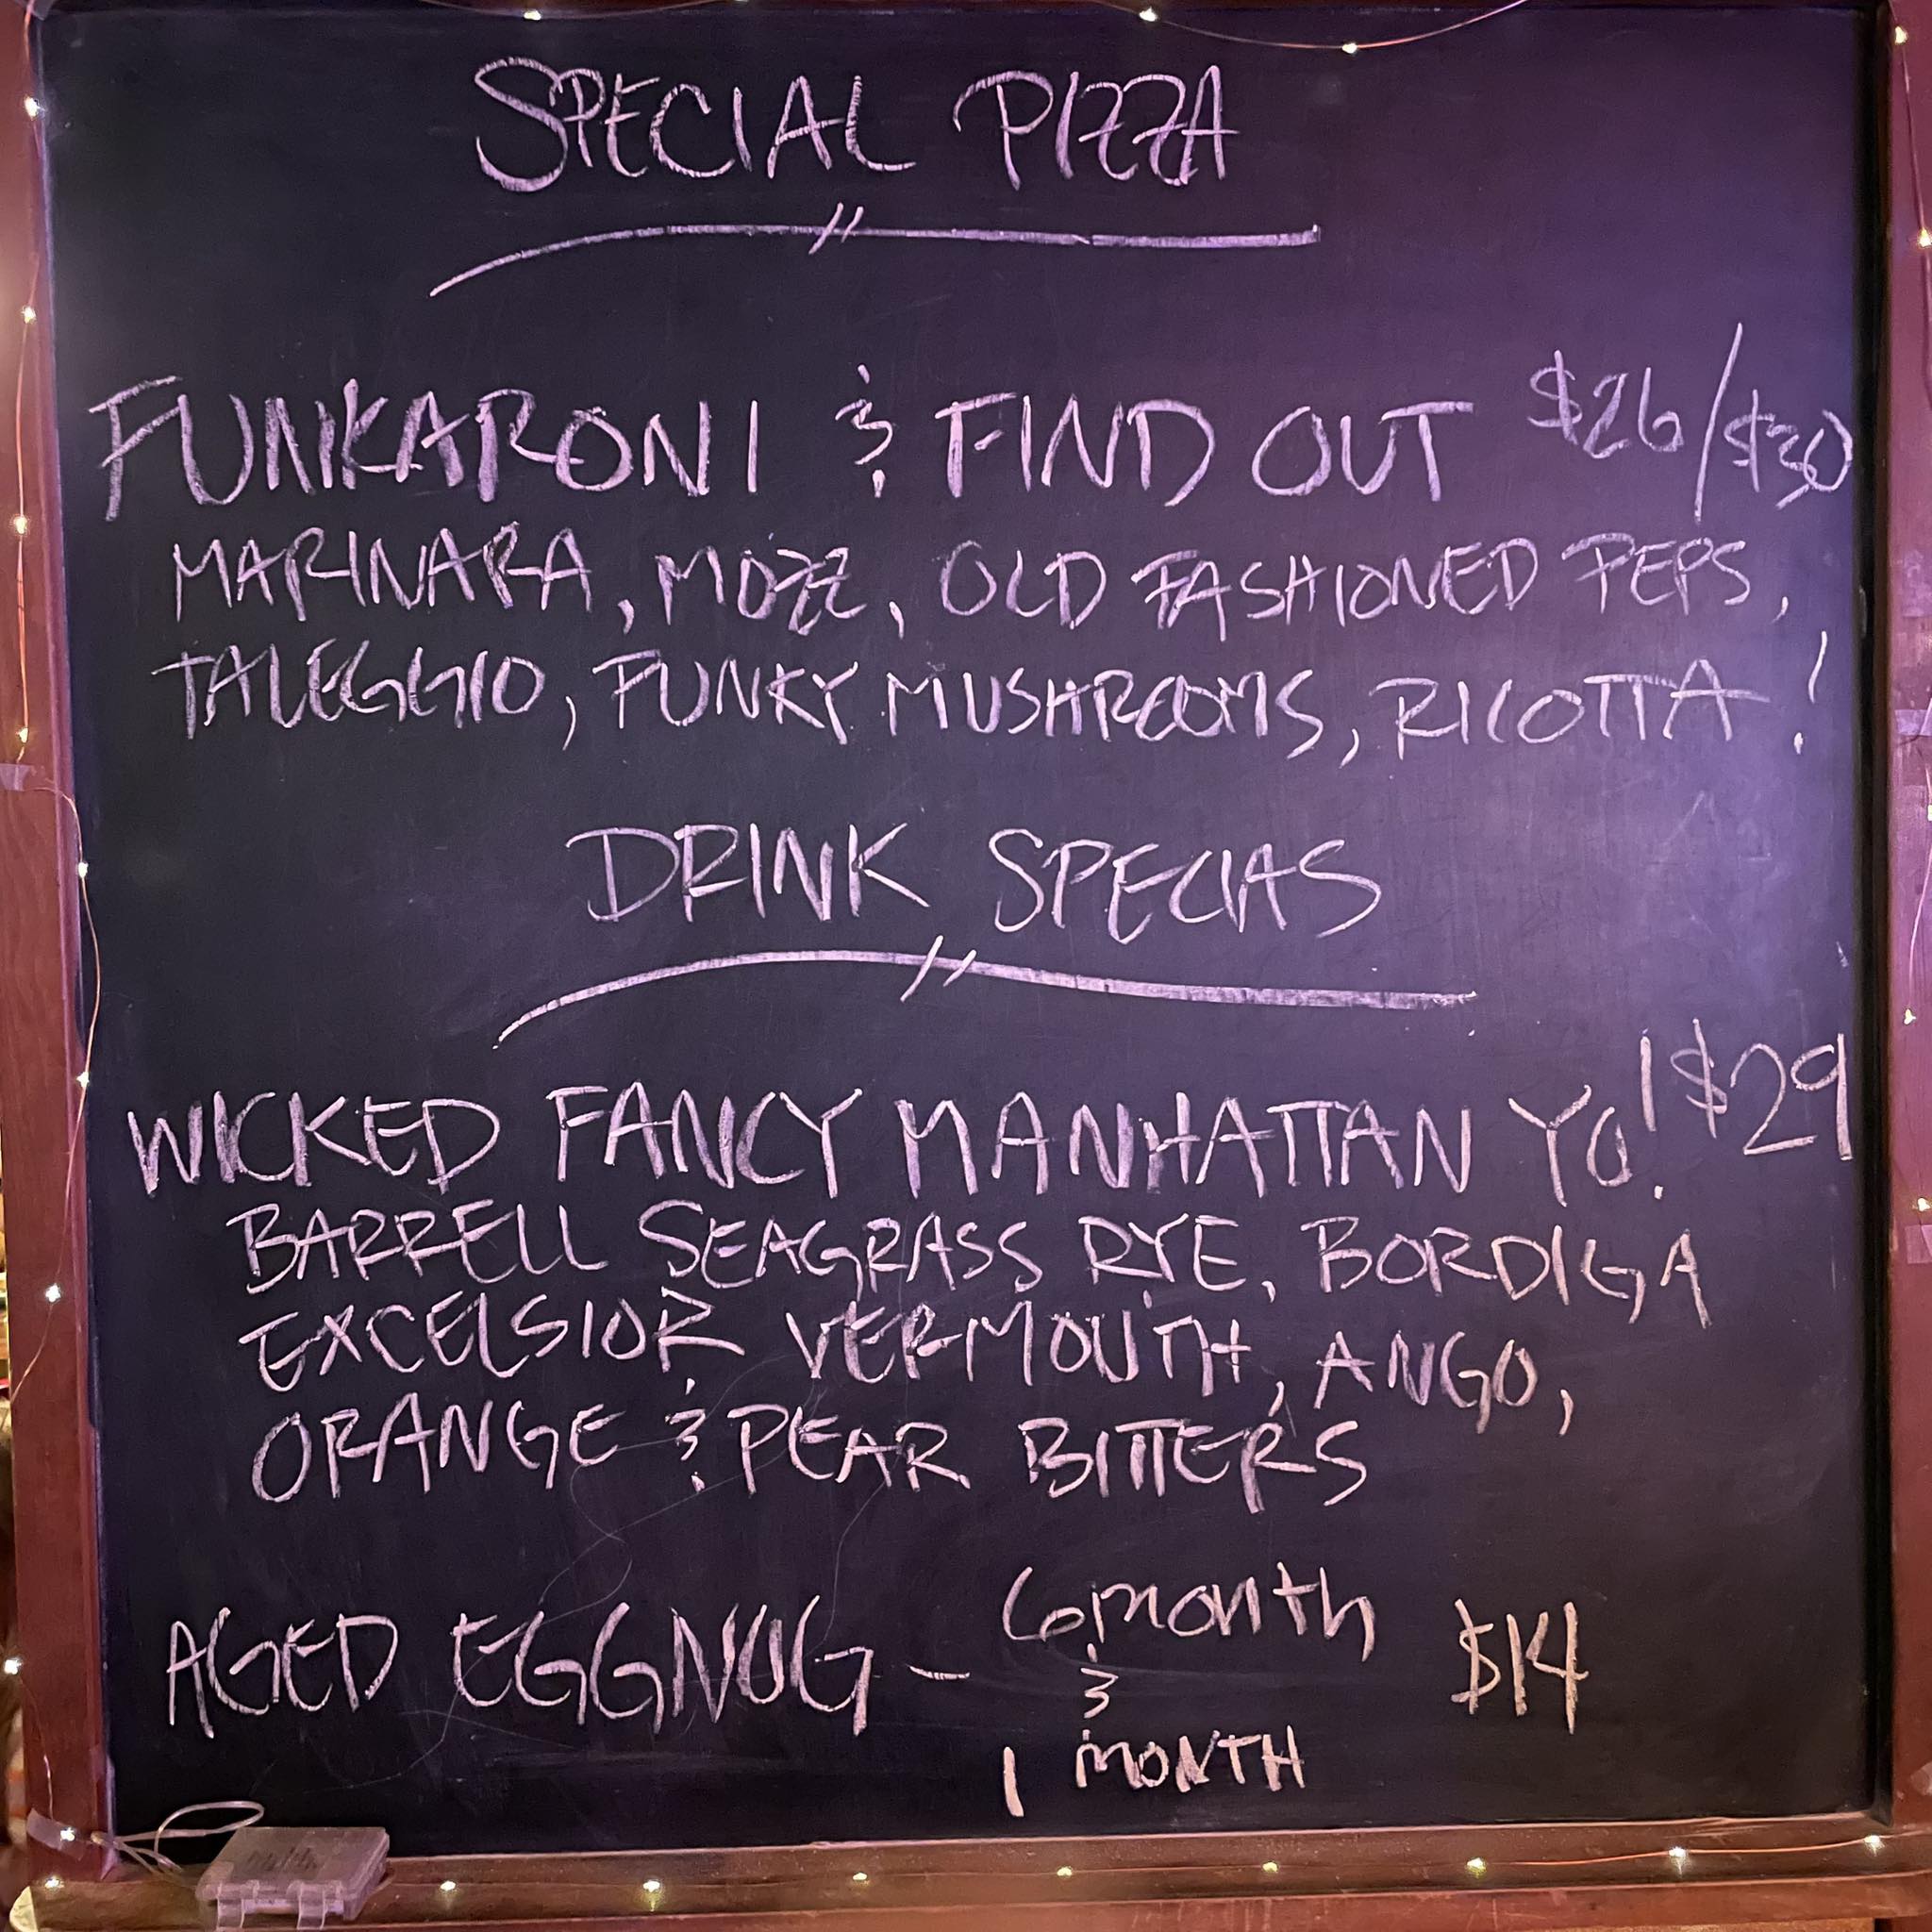 SPECIAL PIZZA
FUNKARONI & FIND OUT $26/$30
MARINARA, MOZZ, OLD FASHIONED PEPS,
TALEGGIO, FUNKY MUSHROOMS, RICOTTA!
DRINK SPECIAS
WICKED FANCY MANHATTAN YO! $29
BARRELL SEAGRASS RYE, BORDIGA
EXCELSIOR VERMOUTH, ANGO,
ORANGE & PEAR BITTERS
AGED EGGNOG - 6 month $14
&
1 MONTH